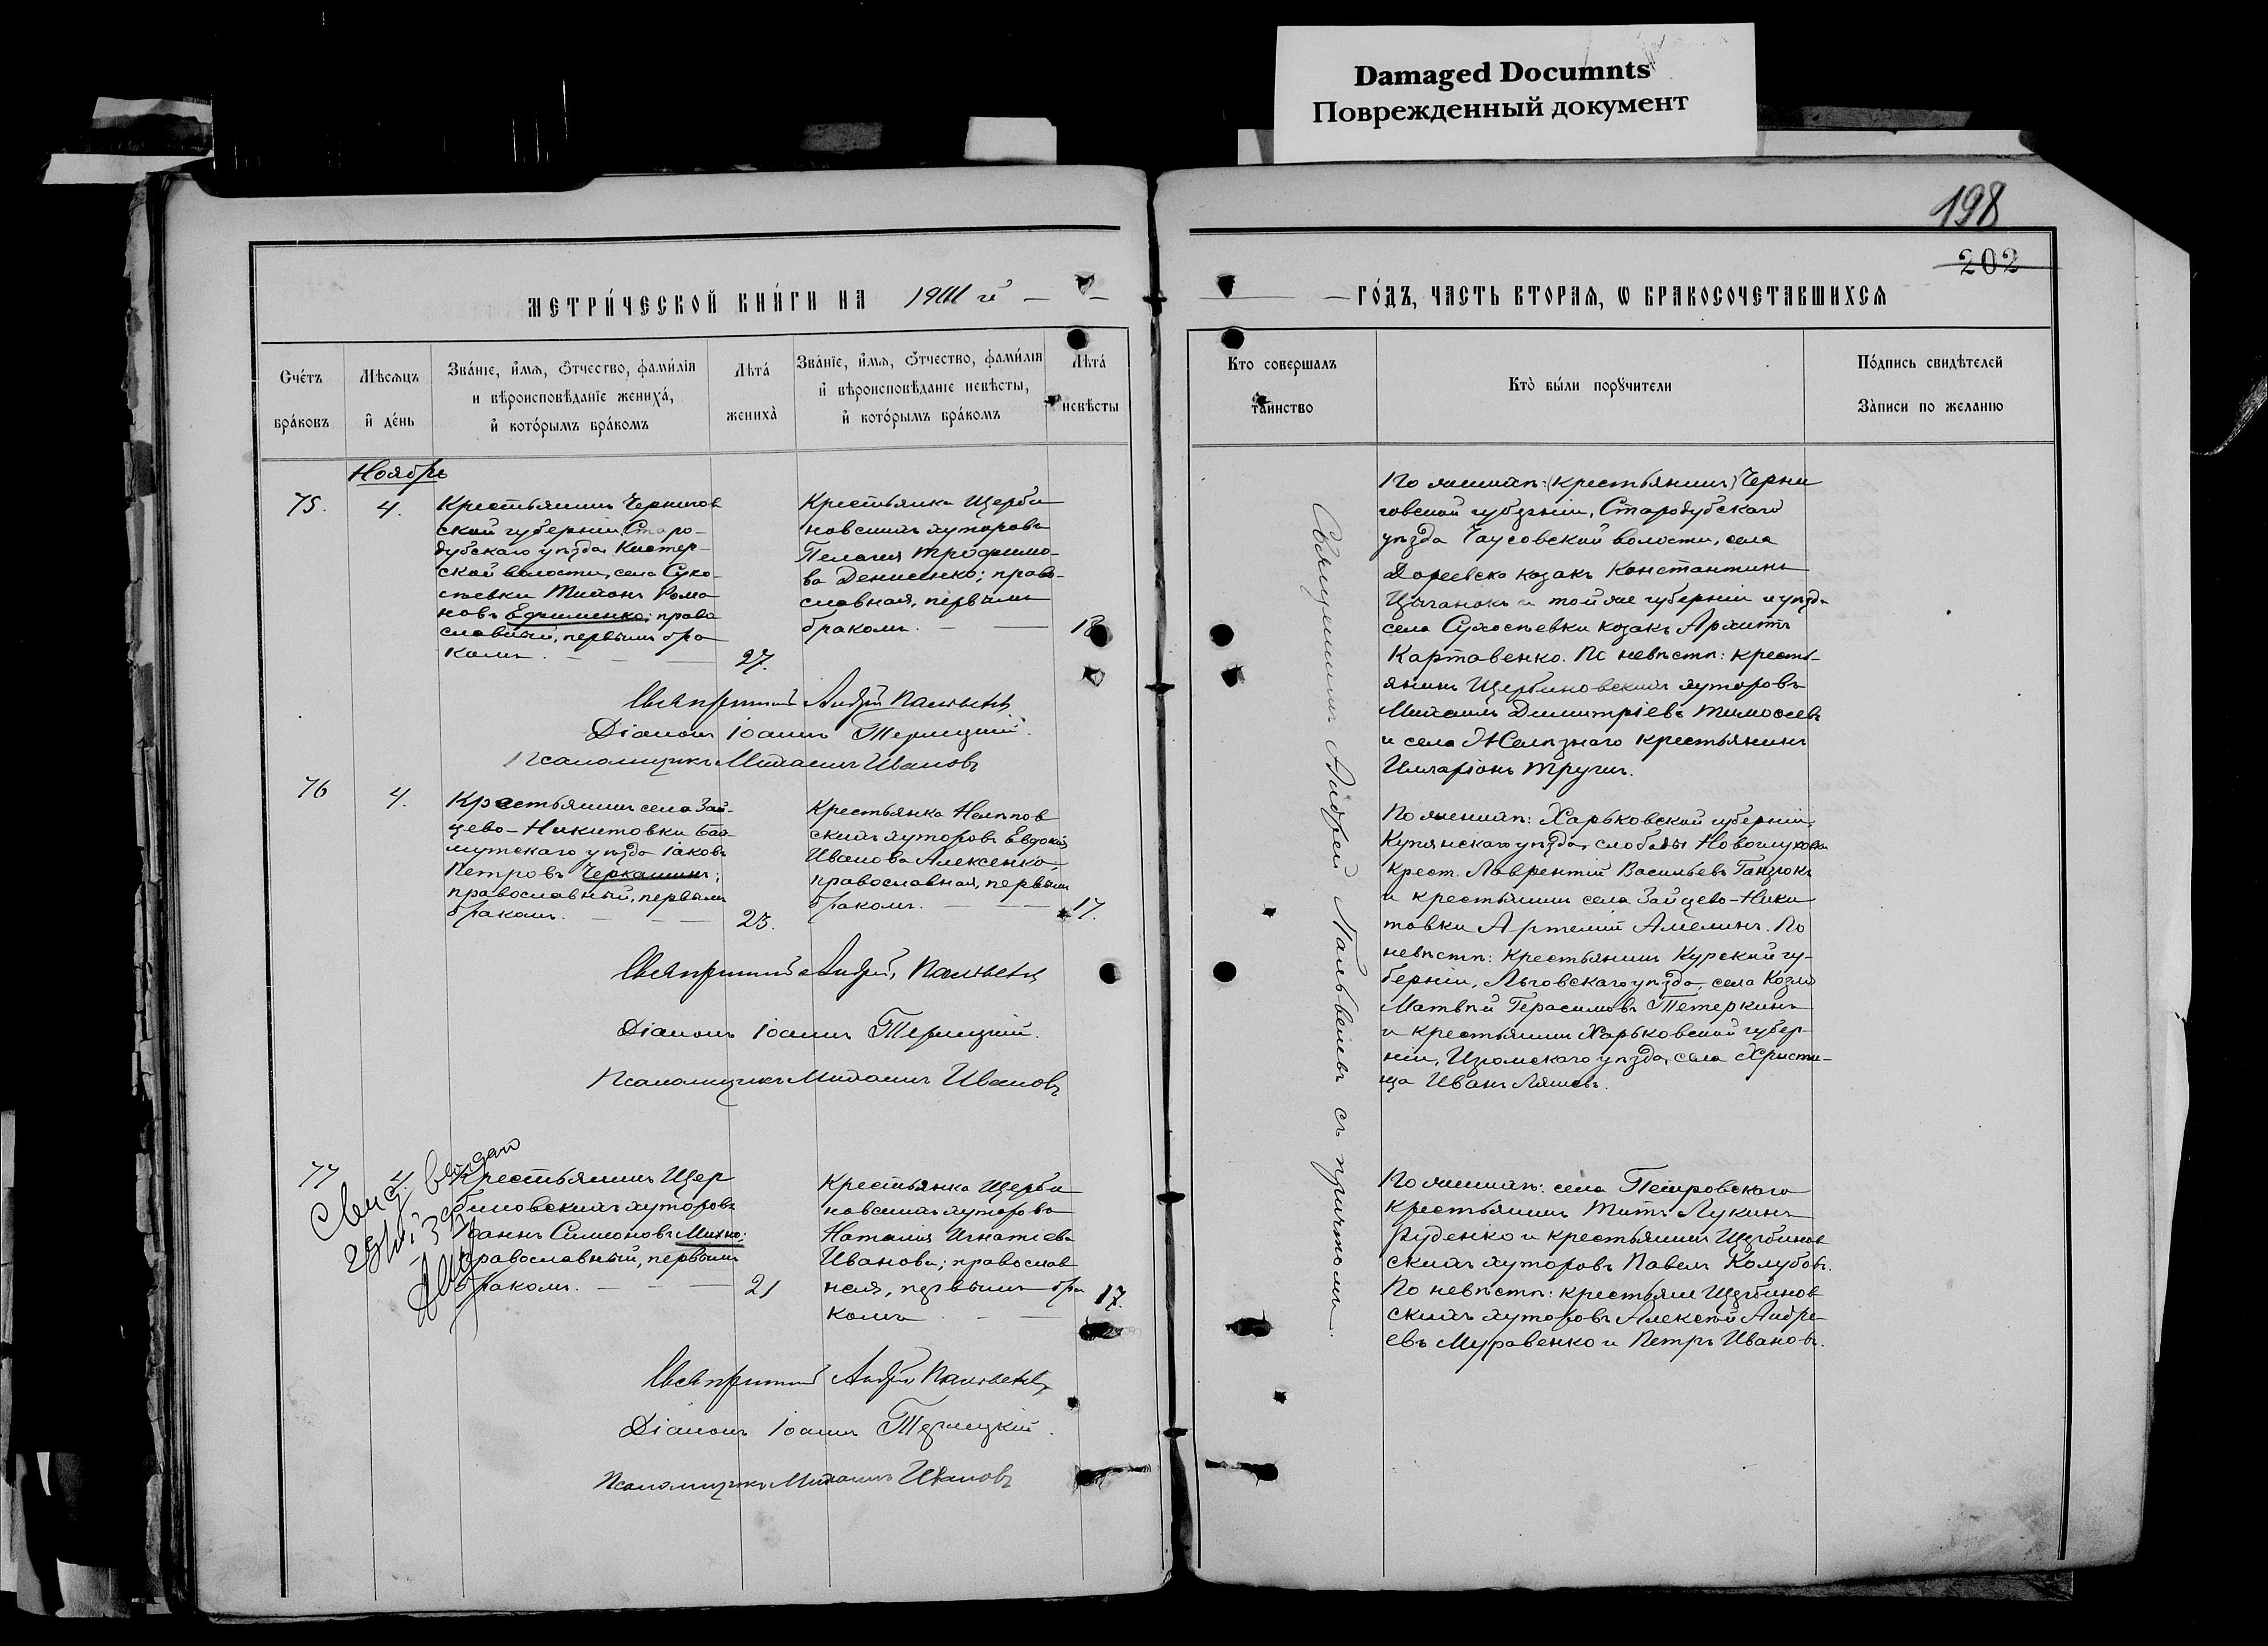 Damaged Documnts
Поврежденный документ
198
202
МЕТРИ́ЧЕСКОЙ КНИ́ГИ НА 1911 й
ГО́ДЪ, ЧАСТЬ ВТОРАѦ, Ѡ БРАКОСОЧЕТАВШИХСѦ
Счётъ
бра́ковъ
Мѣсѧцъ
и҆ де́нь
Зва́нїе, и҆́мѧ, ѻ҆́тчество, фами́лїѧ
и вѣроисповѣданїе жениха̀,
и҆ кото́рымъ бра́комъ
Лѣта́
жениха̀
Зва́нїе, и҆́мѧ, ѻ҆́тчество, фами́лїѧ
и҆ вѣроисповѣданїе невѣсты,
и҆ кото́рымъ бра́комъ
Лѣта́
невѣсты
Кто совершалъ
таинство
Кто̀ бы́ли порꙋчители
По́дпись свидѣтелей
За̀писи по желанїю
Ноябрь
75.
4.
Крестьянинъ Чернигов
ской губерніи, Старо-
дубскаго уѣзда Кистер-
ской волости, села Сухо-
пѣевки Тихонъ Рома
новъ Ефименко; право
славный, первымъ бра
комъ.
27.
Крестьянка Щерби
новскихъ хуторовъ
Пелагія Трофимо-
ва Денисенко; право-
славная, первымъ
бракомъ.
18
По женихѣ: (крестьянинъ) Черни
говской губерніи, Стародубскаго
уѣзда Чаусовской волости, села
козакъ Константинъ
Цыганокъ и той же губерніи и уѣзда
села козакъ Архипъ
Картавенко. По невѣстѣ: кресть-
янинъ Щербиновскихъ хуторовъ
Михаилъ Димитріевъ Тимоѳеевъ
и села Желѣзнаго крестьянинъ
Илларіонъ
Священникъ Андрей
Діаконъ Іоаннъ Терлецкій.
Псаломщикъ Михаилъ Ивановъ
76
4.
Крестьянинъ села Зай-
цево-Никитовки Бах-
мутскаго уѣзда Іаковъ
Петровъ Черкашинъ;
православный, первымъ
бракомъ.
23.
Крестьянка Нелѣпов
скихъ хуторовъ Евдокія
Иванова Алексенко,
православная, первымъ
бракомъ.
17.
По женихѣ: Харьковской губерніи,
Купянскаго уѣзда, слободы
Крест. Лаврентій Васильевъ Ганзюкъ
и крестьянинъ села Зайцево-Ники
товки Артемій Амелинъ. По
невѣстѣ: крестьянинъ Курской гу-
берніи, Льговскаго уѣзда, села
Матвѣй Герасимовъ Тетеркинъ
и крестьянинъ Харьковской губер-
ніи, Изюмскаго уѣзда, села Христи-
ща Иванъ Ляшовъ.
Священникъ Андрей
Діаконъ Іоаннъ Терлецкій.
Псаломщикъ Михаилъ Ивановъ
77
4.
Крестьянинъ Щер
биновскихъ хуторовъ
Іоаннъ Симеоновъ Михно;
православный, первымъ
бракомъ.
21
Крестьянка Щерби
новскихъ хуторовъ
Наталія Игнатіева
Иванова; православ
ная, первымъ бра
комъ
17.
По женихѣ: села Петровскаго
крестьянинъ Титъ Лукинъ
Руденко и крестьянинъ Щербинов
скихъ хуторовъ Павелъ Колубовъ.
По невѣстѣ: крестьяне Щербинов
скихъ хуторовъ Алексѣй Андре-
евъ Муравенко и Петръ Ивановъ.
Священникъ Андрей
Діаконъ Іоаннъ Терлецкій.
Псаломщикъ Михаилъ Ивановъ
Священникъ Андрей съ причтомъ.